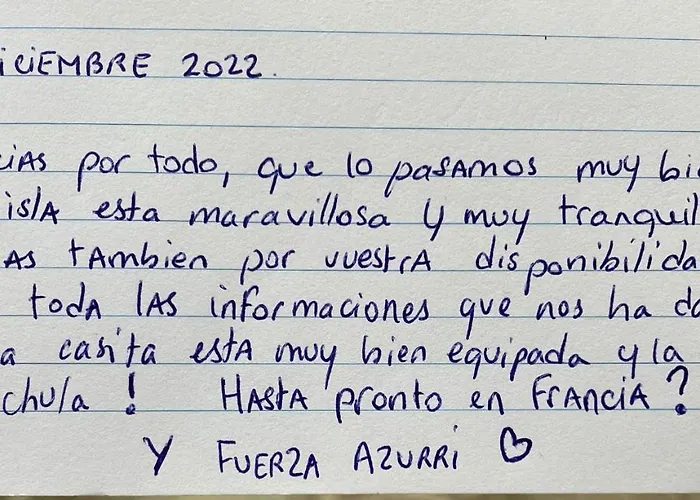 iciEMBRE 2022.
ciAS por todo, que lo pasamos muy bi
isla esta maravillosa y muy tranquil
AS tambien por vuestra disponibilida
toda las informaciones que nos ha da
a casita esta muy bien equipada y la
chula ! Hasta pronto en Francia ?
Y FUERZA AZURRI ♡